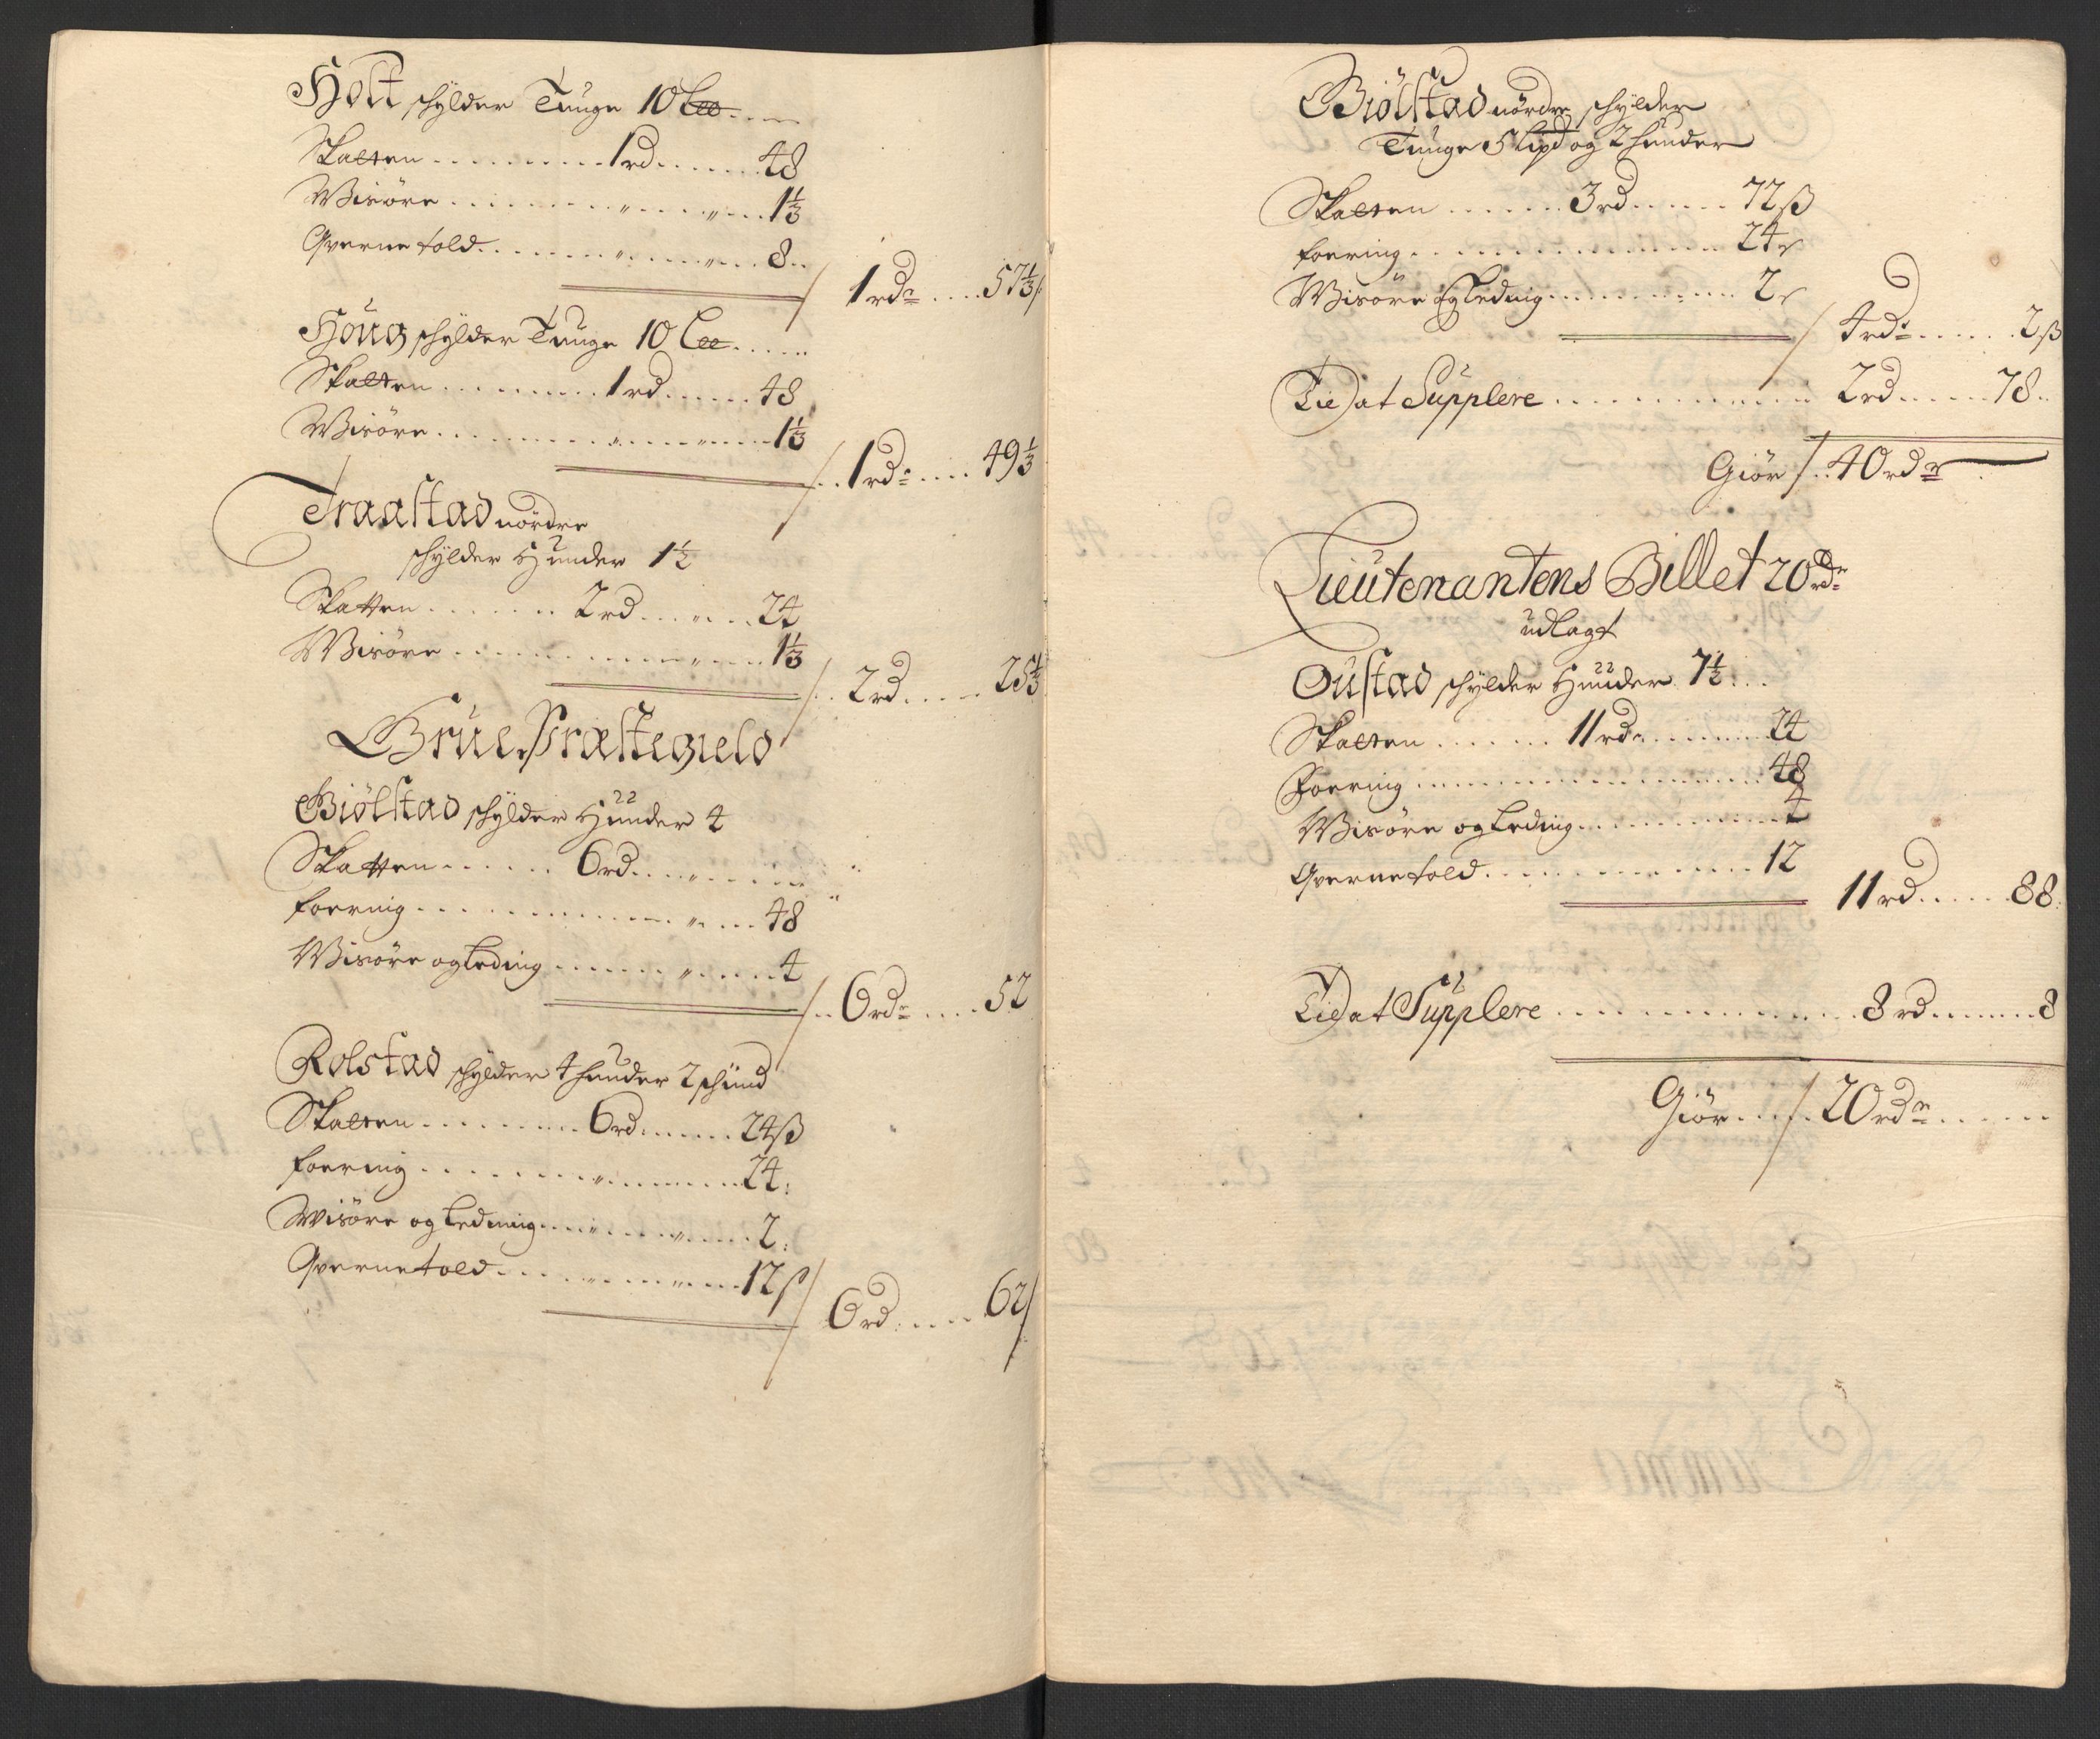 Holt schylder Tunge 10 Lee
Skatten 1 rd 48
Wisöre „ „ 1⅓
Qverne told „ „ 8
1 rdr 57⅓ /
Houg schylder Tunge 10 Lee
Skatten 1 rd 48
Wisöre „ „ 1⅓
1 rdr 49⅓
Traastad nordre
schylder Hunder 1½
Skatten 2 rd „ 24
Wisöre „ 1⅓
2 rd 25⅓
Grue Præstegield
Biölstad schylder Hunder 4
Skatten 6 rd „ „
foering „ 48
Wisöre og Leding „ 4
6 rdr 52
Rolstad schylder 4 hunder 2 schind
Skatten 6 rd 24 ß
foering „ 24
Wisöre og Leding „ „ 2
Qverne told „ „ 12 ß
6 rd 62 /
Biölstad nordre schylder
Tunge 5 Lispd og 2 hunder
Skatten 3 rd 72 ß
foering 24
Wisöre og Leding 2
4 rdr 2 ß
Til at Supplere 2 rd 78
Giör 40 rdr
Lieutenantens Billet 20 rdr
udlagt
Oustad schylder Huuder 7½
Skatten 11 rd 24
Foering 48
Wisöre og Leding 4
Qverne told 12
11 rd 88
Til at Supplere 8 rd 8
Giör 20 rdr